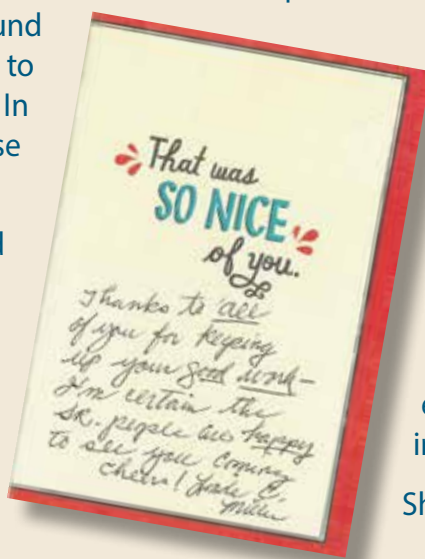 und
to
In
se
That was
SO NICE
of you.
Thanks to all
of you for keeping
up your good work—
I'm certain the
SR. people are happy
to see you coming
Cheers!
Miller
in
Sh